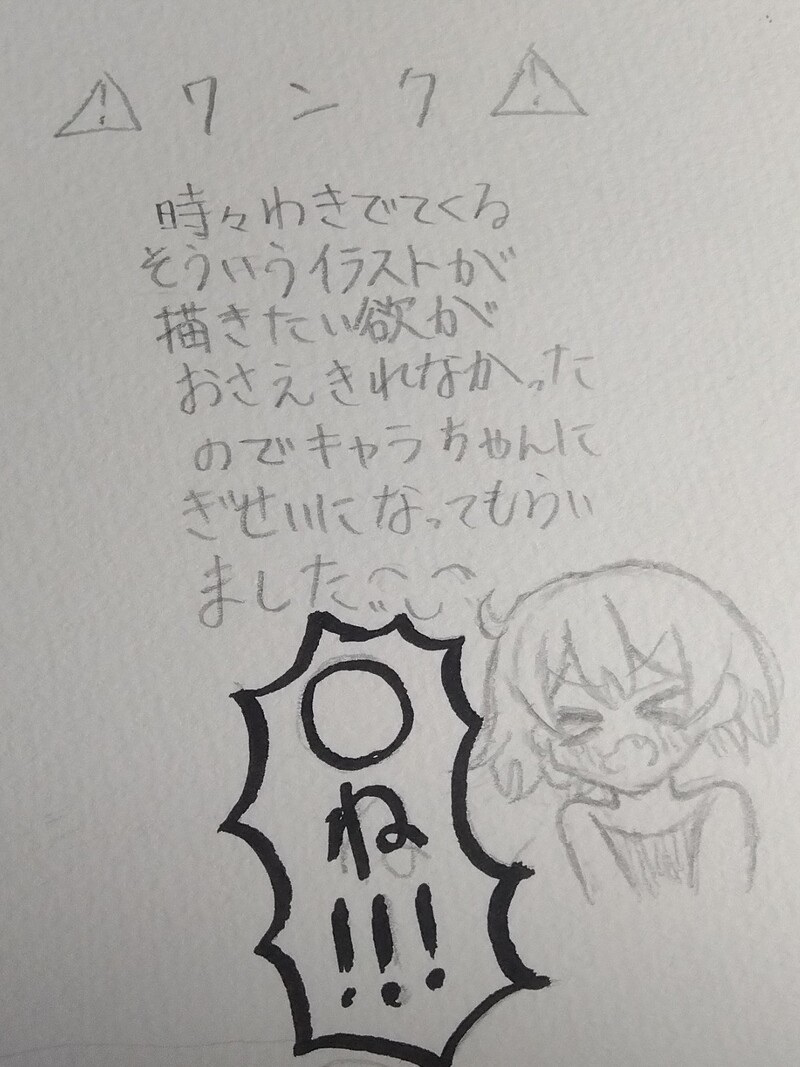 ⚠ワンク⚠
時々わきでてくる
そういうイラストが
描きたい欲が
おさえきれなかった
のでキャラちゃんに
ぎせいになってもらい
ました
〇ね!!!